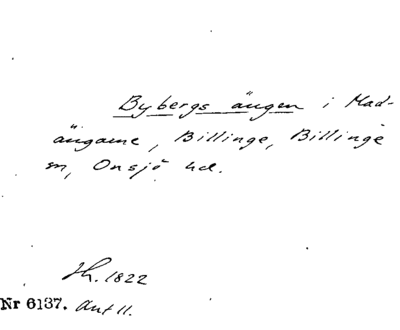 Bybergs ängen i Mad-
ängarne, Billinge, Billinge
sn, Onsjö hd.
Hh. 1822
Nr 6137. Ant 11.